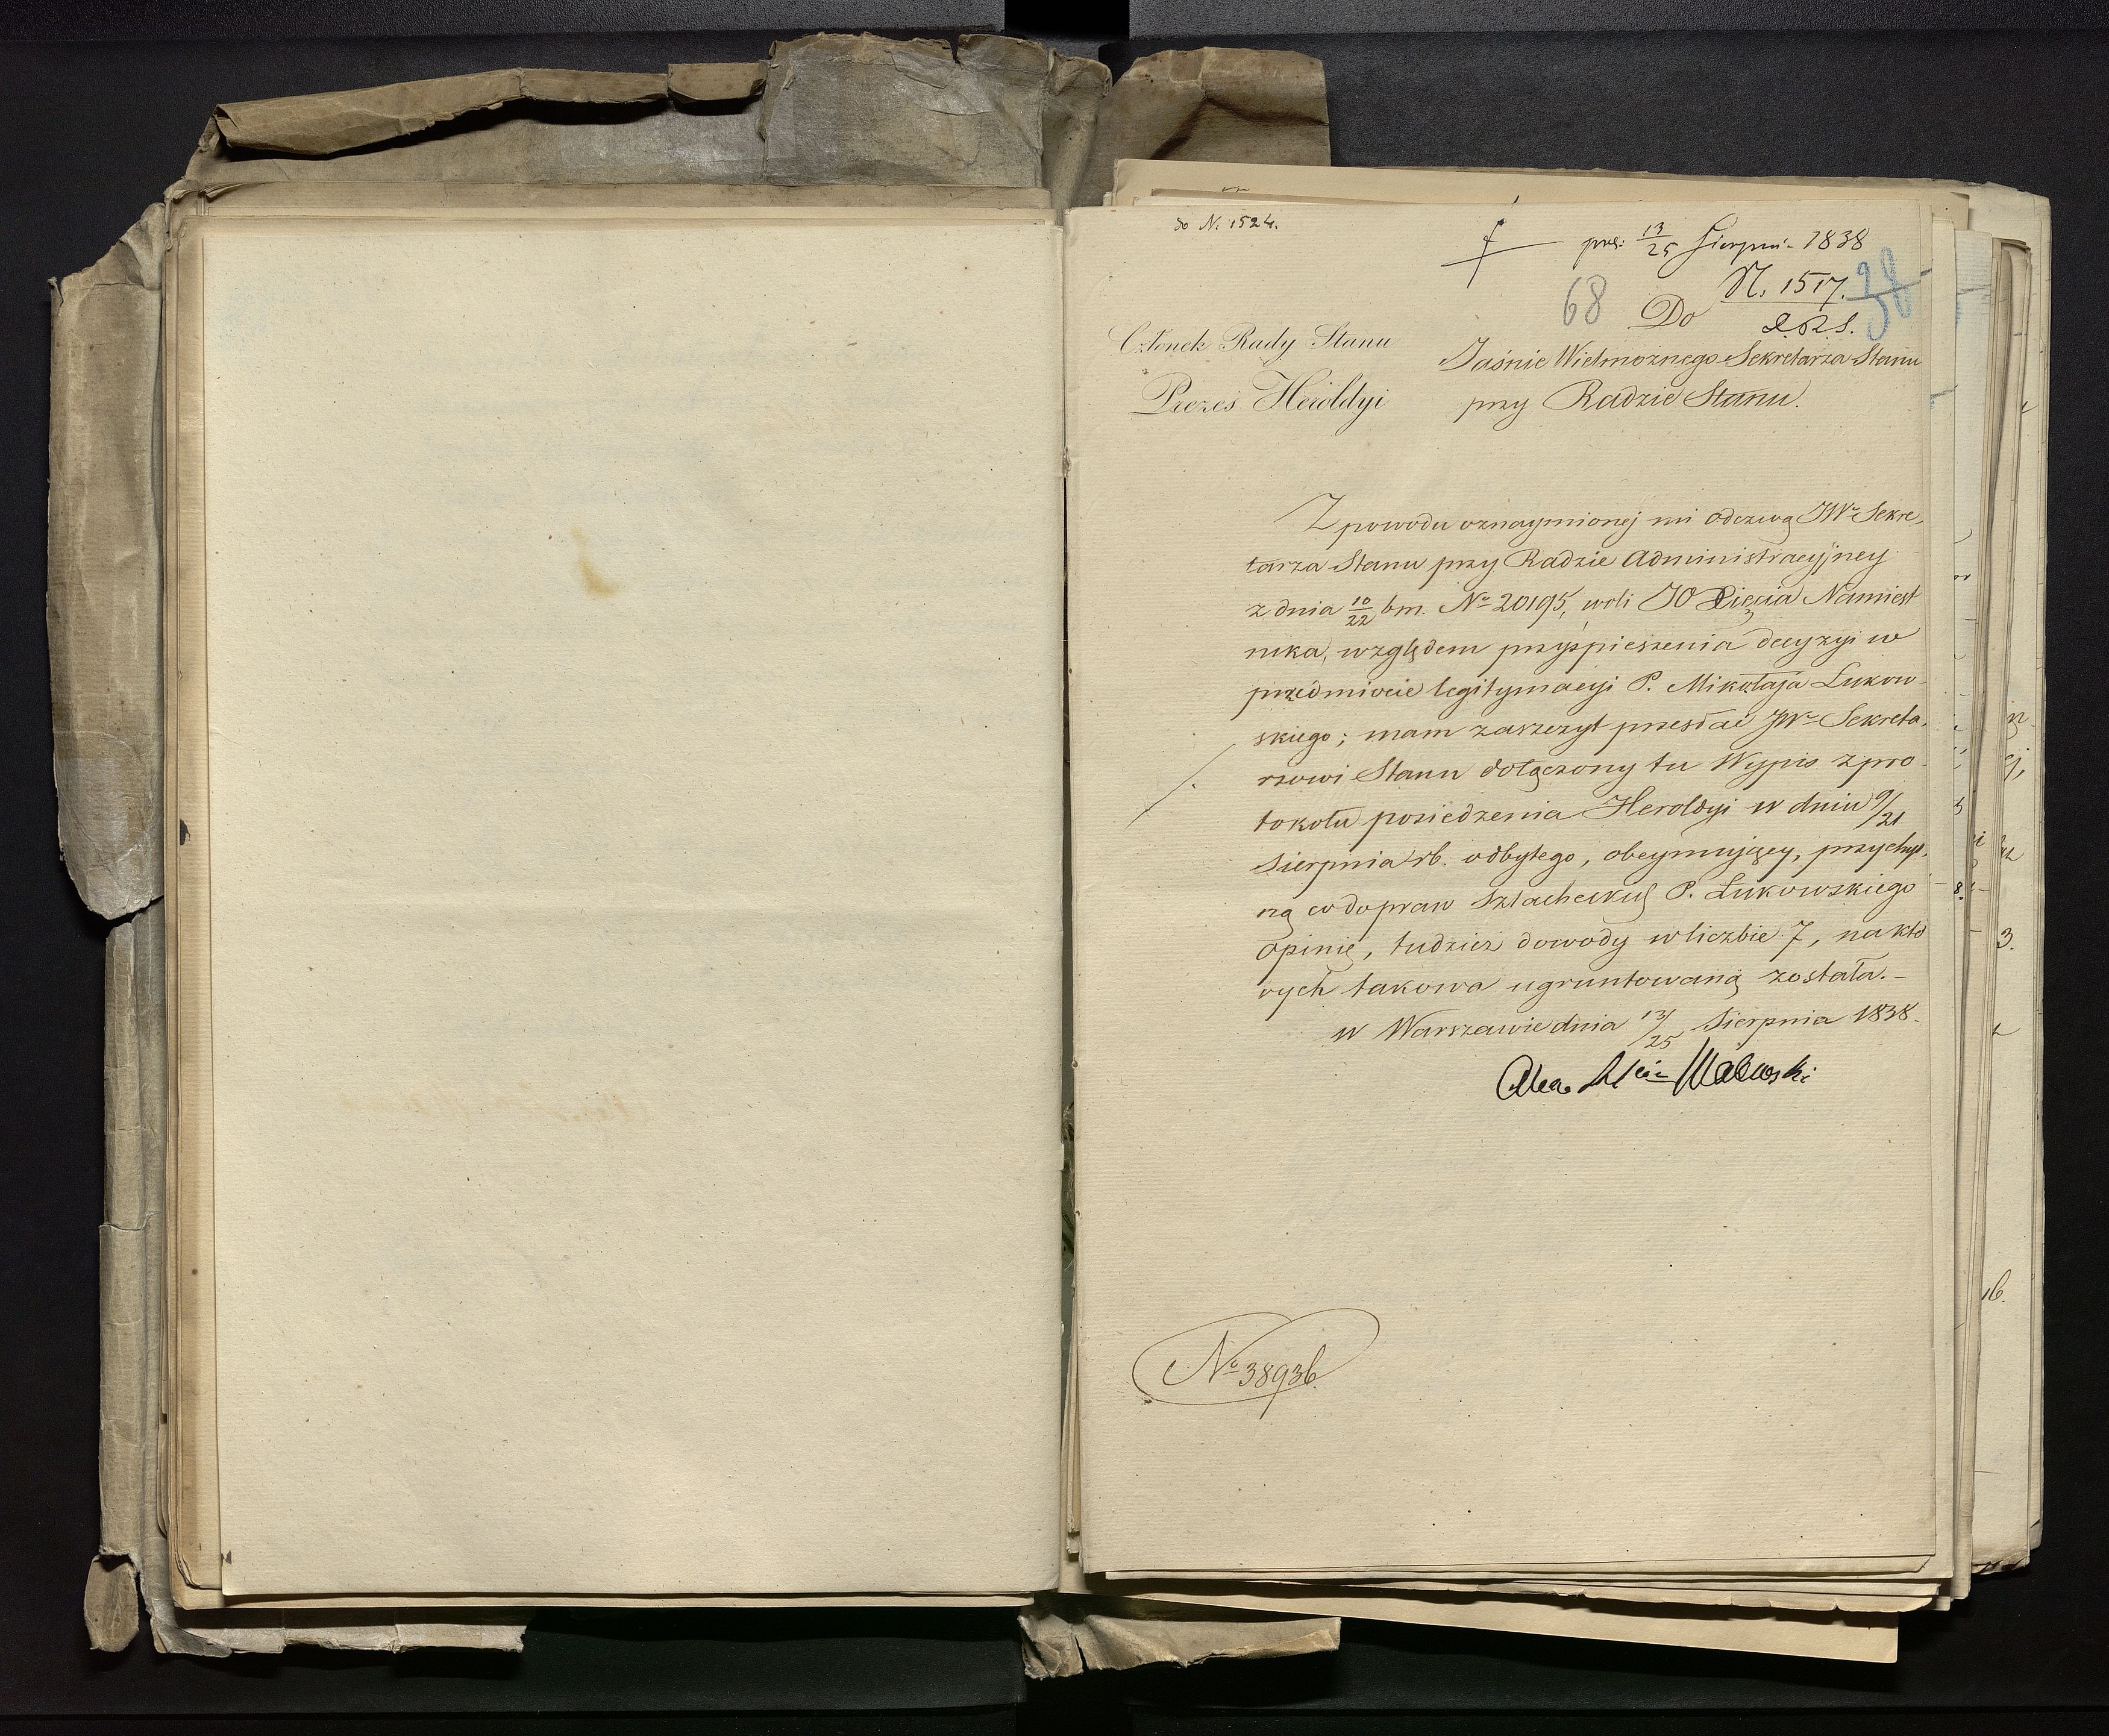 do N. 1524.
pres: 13/25 Sierpni- 1838
N. 1517.
68
38
Do
Członek Rady Stanu
Jaśnie Wielmożnego Sekretarza Stanu
Prezes Heroldyi
przy Radzie Stanu.
Z powodu oznaymionej mi odezwą JW- Sekre-
tarza Stanu przy Radzie Administracyjney
z dnia 10/22 bm. No 20195, woli JO Xięcia Namiest
nika, względem przyśpieszenia decyzyi w
przedmiocie legitymacyi P. Mikołaja Łukow-
skiego; mam zaszczyt przesłać JW- Sekreta-
rzowi Stanu dołączony tu Wypis z pro-
tokołu posiedzenia Heroldyi w dniu 9/21
Sierpnia rb. odbytego, obeymujący, przychyl-
ną co do praw szlacheckich P. Łukowskiego
opinię, tudzież dowody w liczbie 7, na któ
rych takowa ugruntowaną została.-
w Warszawie dnia 13/25 Sierpnia 1838.
Walewski
No 38936.